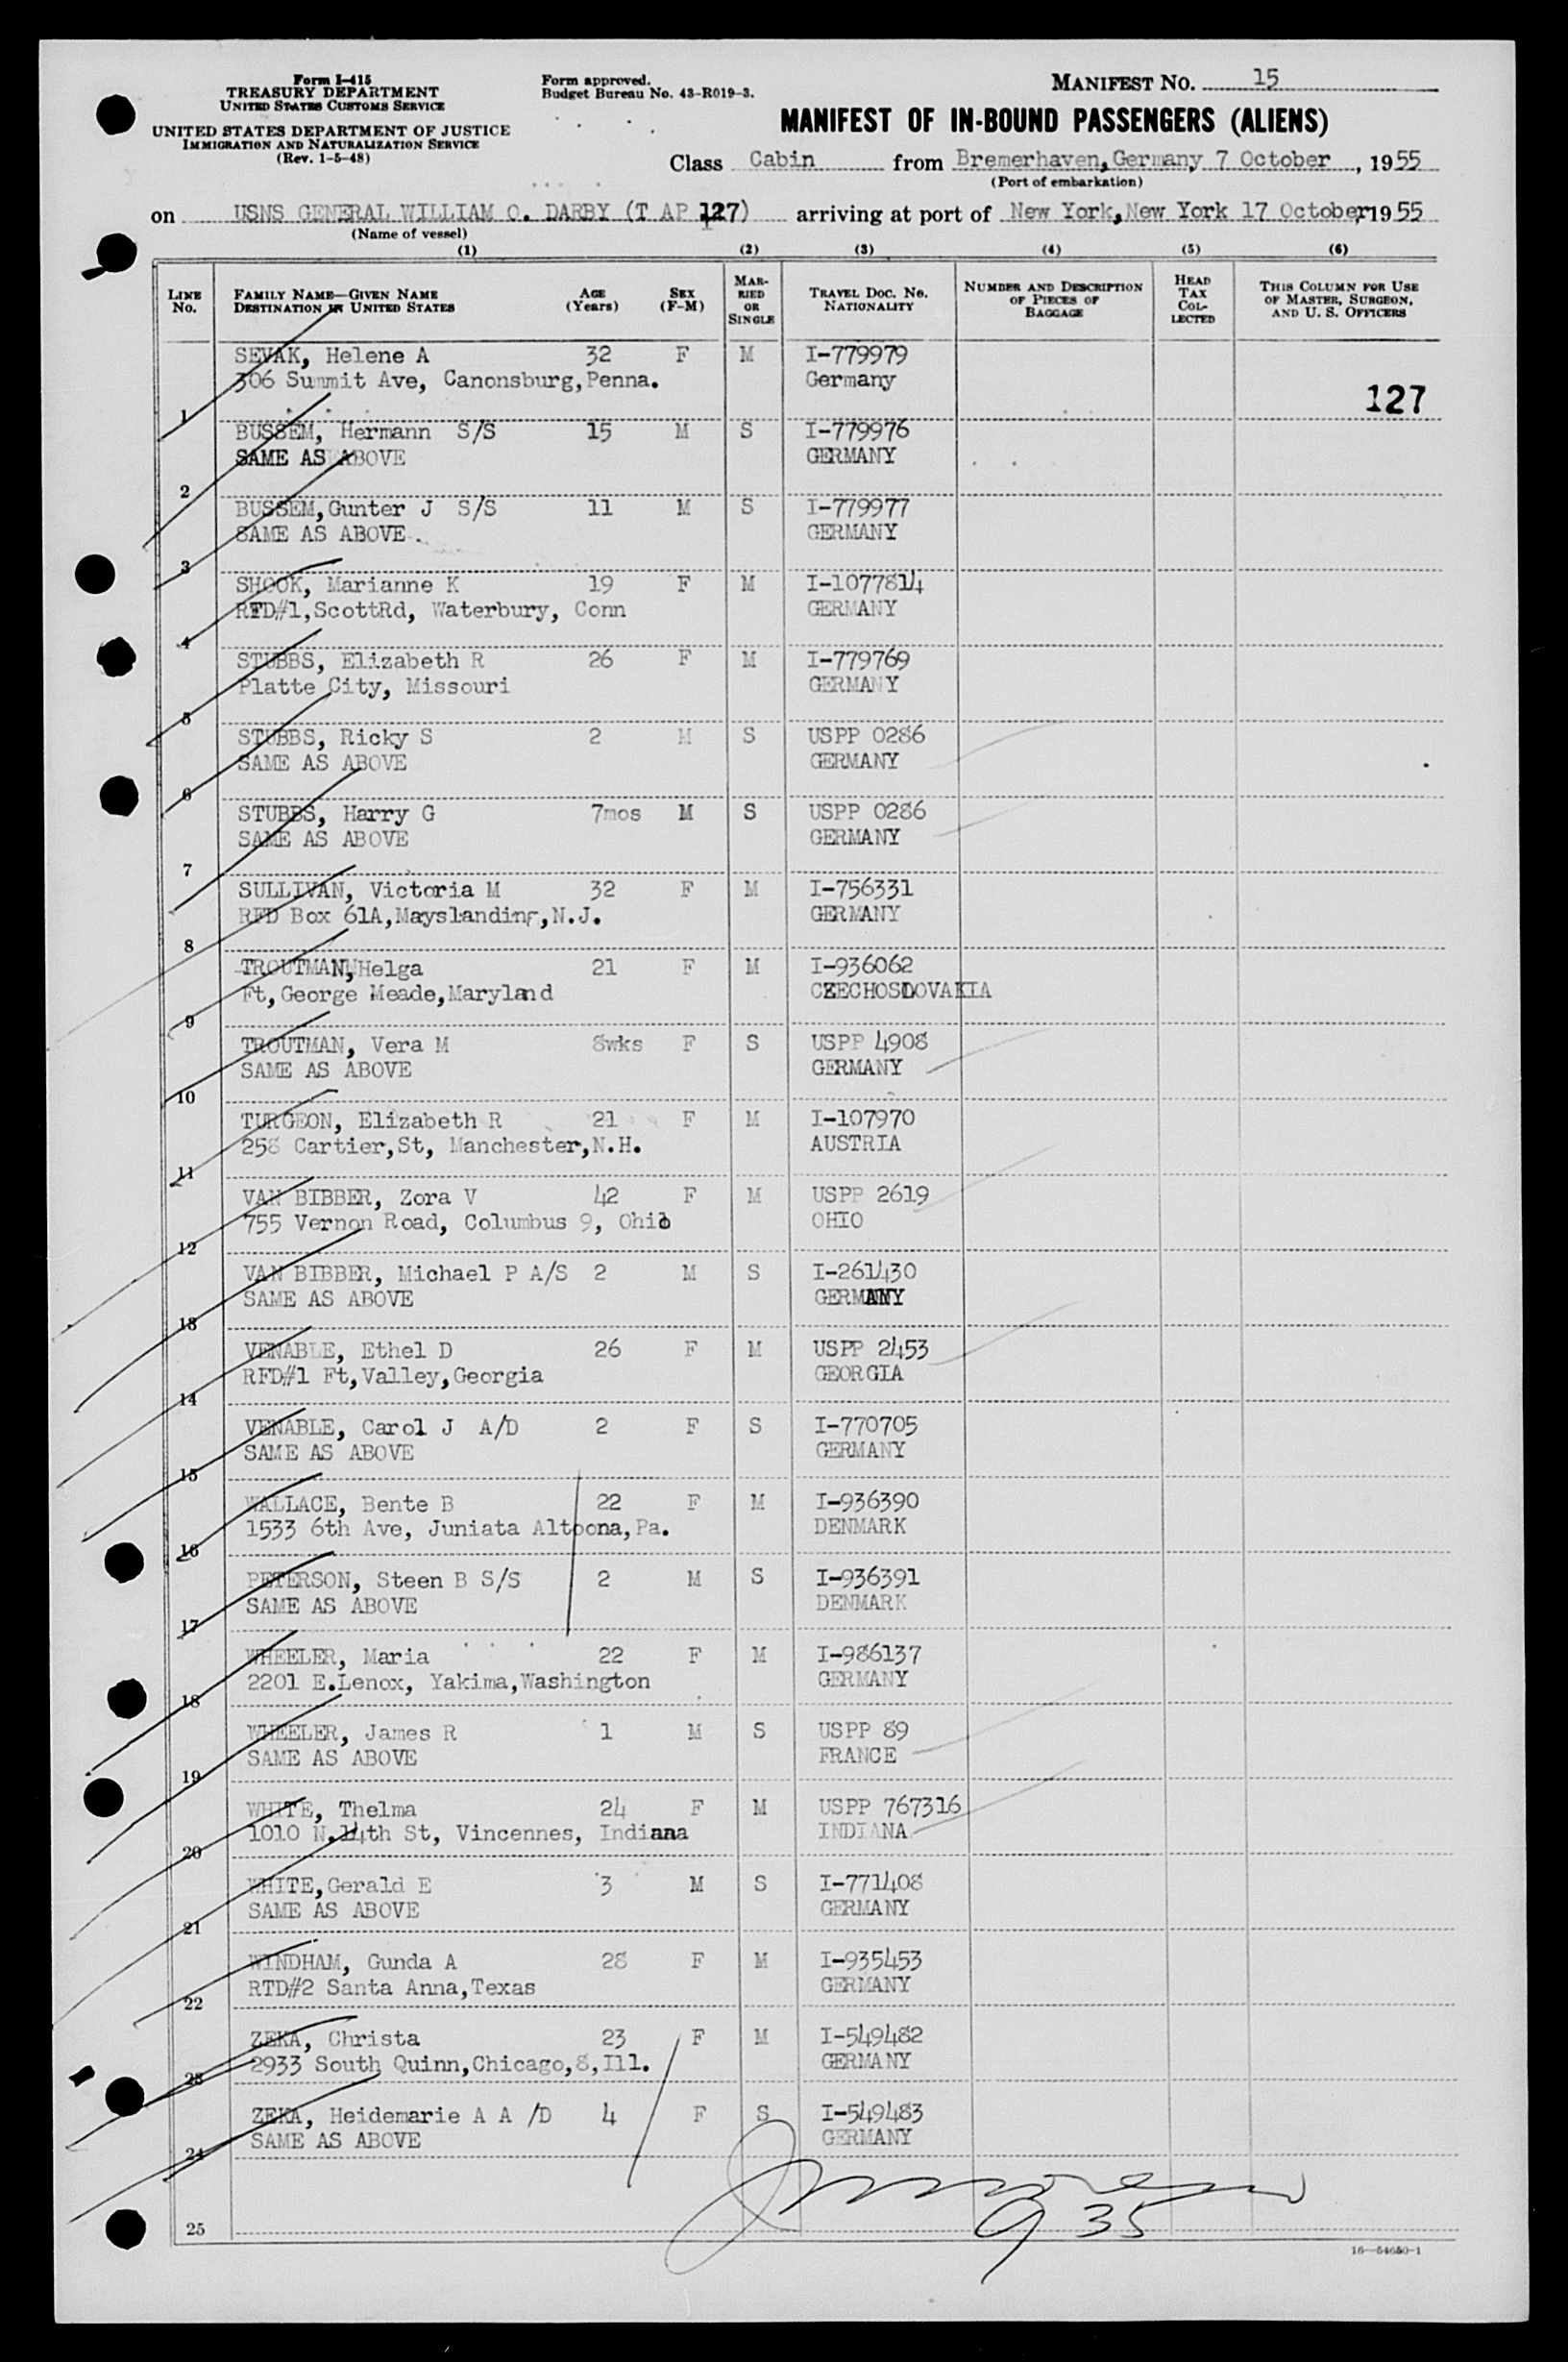 Form I-415
TREASURY DEPARTMENT
UNITED STATES CUSTOMS SERVICE
UNITED STATES DEPARTMENT OF JUSTICE
IMMIGRATION AND NATURALIZATION SERVICE
(Rev. 1-5-48)
Form approved.
Budget Bureau No. 43-R019-3.
MANIFEST NO. 15
MANIFEST OF IN-BOUND PASSENGERS (ALIENS)
Class Cabin from Bremerhaven, Germany 7 October, 1955
(Port of embarkation)
on USNS GENERAL WILLIAM O. DARBY (T AP 127) arriving at port of New York, New York 17 October, 1955
(Name of vessel)
(1) (2) (3) (4) (5) (6)
LINE No. FAMILY NAME—GIVEN NAME DESTINATION IN UNITED STATES AGE (Years) SEX (F-M) MARRIED OR SINGLE TRAVEL DOC. No. NATIONALITY NUMBER AND DESCRIPTION OF PIECES OF BAGGAGE HEAD TAX COLLECTED THIS COLUMN FOR USE OF MASTER, SURGEON, AND U. S. OFFICERS
SEVAK, Helene A 32 F M I-779979
306 Summit Ave, Canonsburg, Penna. Germany
127
1
BUSSEM, Hermann S/S 15 M S I-779976
SAME AS ABOVE GERMANY
2
BUSSEM, Gunter J S/S 11 M S I-779977
SAME AS ABOVE. GERMANY
3
SHOOK, Marianne K 19 F M I-1077814
RFD#1,ScottRd, Waterbury, Conn GERMANY
4
STUBBS, Elizabeth R 26 F M I-779769
Platte City, Missouri GERMANY
5
STUBBS, Ricky S 2 M S USPP 0286
SAME AS ABOVE GERMANY
6
STUBBS, Harry G 7mos M S USPP 0286
SAME AS ABOVE GERMANY
7
SULLIVAN, Victoria M 32 F M I-756331
RFD Box 61A,Mayslanding,N.J. GERMANY
8
TROUTMAN, Helga 21 F M I-936062
Ft,George Meade,Maryland CZECHOSLOVAKIA
9
TROUTMAN, Vera M 8wks F S USPP 4908
SAME AS ABOVE GERMANY
10
TURGEON, Elizabeth R 21 F M I-107970
258 Cartier,St, Manchester,N.H. AUSTRIA
11
VAN BIBBER, Zora V 42 F M USPP 2619
755 Vernon Road, Columbus 9, Ohio OHIO
12
VAN BIBBER, Michael P A/S 2 M S I-261430
SAME AS ABOVE GERMANY
13
VENABLE, Ethel D 26 F M USPP 2453
RFD#1 Ft,Valley,Georgia GEORGIA
14
VENABLE, Carol J A/D 2 F S I-770705
SAME AS ABOVE GERMANY
15
WALLACE, Bente B 22 F M I-936390
1533 6th Ave, Juniata Altoona,Pa. DENMARK
16
PETERSON, Steen B S/S 2 M S I-936391
SAME AS ABOVE DENMARK
17
WHEELER, Maria 22 F M I-986137
2201 E.Lenox, Yakima,Washington GERMANY
18
WHEELER, James R 1 M S USPP 89
SAME AS ABOVE FRANCE
19
WHITE, Thelma 24 F M USPP 767316
1010 N.14th St, Vincennes, Indiana INDIANA
20
WHITE,Gerald E 3 M S I-771408
SAME AS ABOVE GERMANY
21
WINDHAM, Gunda A 28 F M I-935453
RTD#2 Santa Anna,Texas GERMANY
22
ZEKA, Christa 23 F M I-549482
2933 South Quinn,Chicago,8,Ill. GERMANY
23
ZEKA, Heidemarie A A /D 4 F S I-549483
SAME AS ABOVE GERMANY
24
935
25
16—54680-1